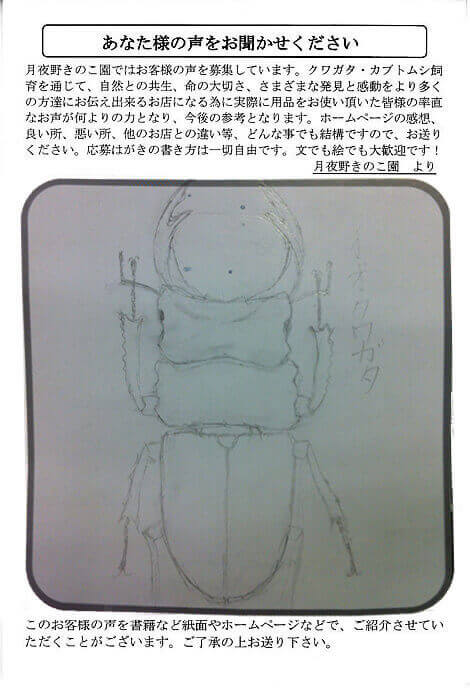 あなた様の声をお聞かせください
月夜野きのこ園ではお客様の声を募集しています。クワガタ・カブトムシ飼
育を通じて、自然との共生、命の大切さ、さまざまな発見と感動をより多く
の方達にお伝え出来るお店になる為に実際に用品をお使い頂いた皆様の率直
なお声が何よりの力となり、今後の参考となります。ホームページの感想、
良い所、悪い所、他のお店との違い等、どんな事でも結構ですので、お送り
ください。応募はがきの書き方は一切自由です。文でも絵でも大歓迎です！
月夜野きのこ園　より
クワガタ
このお客様の声を書籍など紙面やホームページなどで、ご紹介させてい
ただくことがございます。ご了承の上お送り下さい。